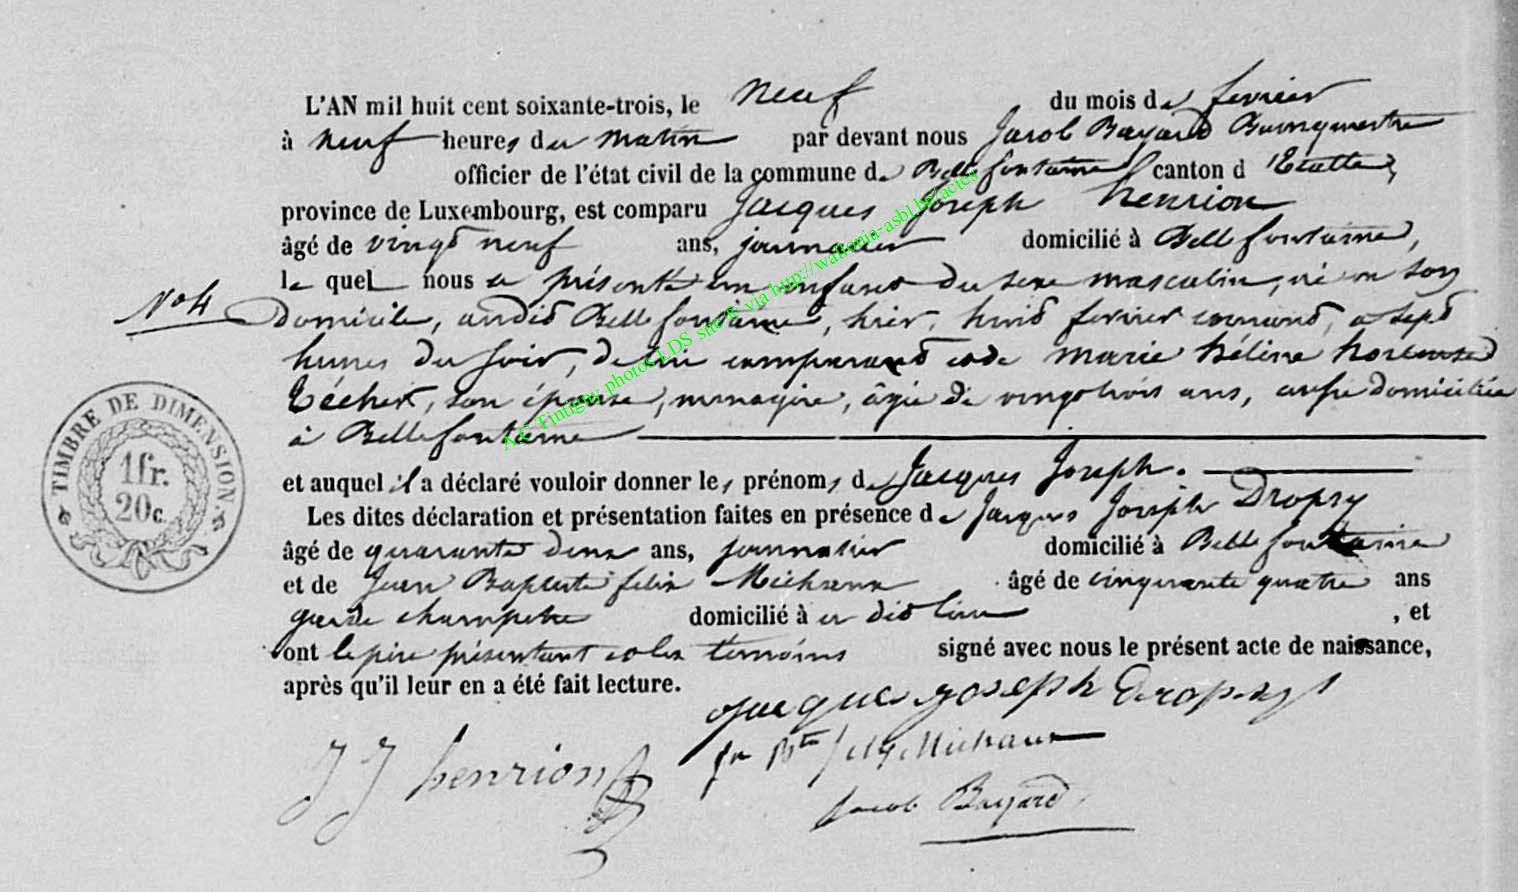 L'AN mil huit cent soixante-trois, le neuf du mois de fevrier
à neuf heures du matin par devant nous Jacob Bayard Bourgmestre
officier de l'état civil de la commune de Bellefontaine canton d'Etalle,
province de Luxembourg, est comparu Jacques Joseph henrion
âgé de vingt neuf ans, journalier domicilié à Bellefontaine,
le quel nous a présenté un enfant du sexe masculin, né en son
No 4
domicile, audit Bellefontaine, hier, huit fevrier courant, a sept
heures du soir, de lui comparant et de Marie héline hortense
son épouse, menagère, âgée de vingt trois ans, aussi domiciliée
à Bellefontaine
et auquel il a déclaré vouloir donner les prénoms de Jacques Joseph.
Les dites déclaration et présentation faites en présence de Jacques Joseph Dropsy
âgé de quarante deux ans, journalier domicilié à Bellefontaine
et de Jean Baptiste felix Michaux âgé de cinquante quatre ans
garde champetre domicilié à en dit lieu , et
ont le père présentant et les témoins signé avec nous le présent acte de naissance,
après qu'il leur en a été fait lecture.
Jacques Joseph Dropsy
J J henrion
jn Bte felix Michaux
Jacob Bayard
TIMBRE DE DIMENSION.
1fr.
20c.
A.G. Tintigny photos LDS site's via http://wallonia-asbl.be/actes